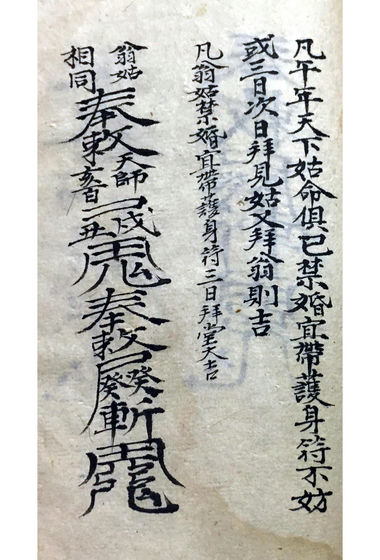 凡午年天下姑命俱已禁婚宜帶護身符不妨
或三日次日拜見姑又拜翁則吉
凡翁姑禁婚宜帶護身符三日拜堂大吉
翁姑
相同
奉敕
天師
亥
丑
戌
奉敕
癸
斬